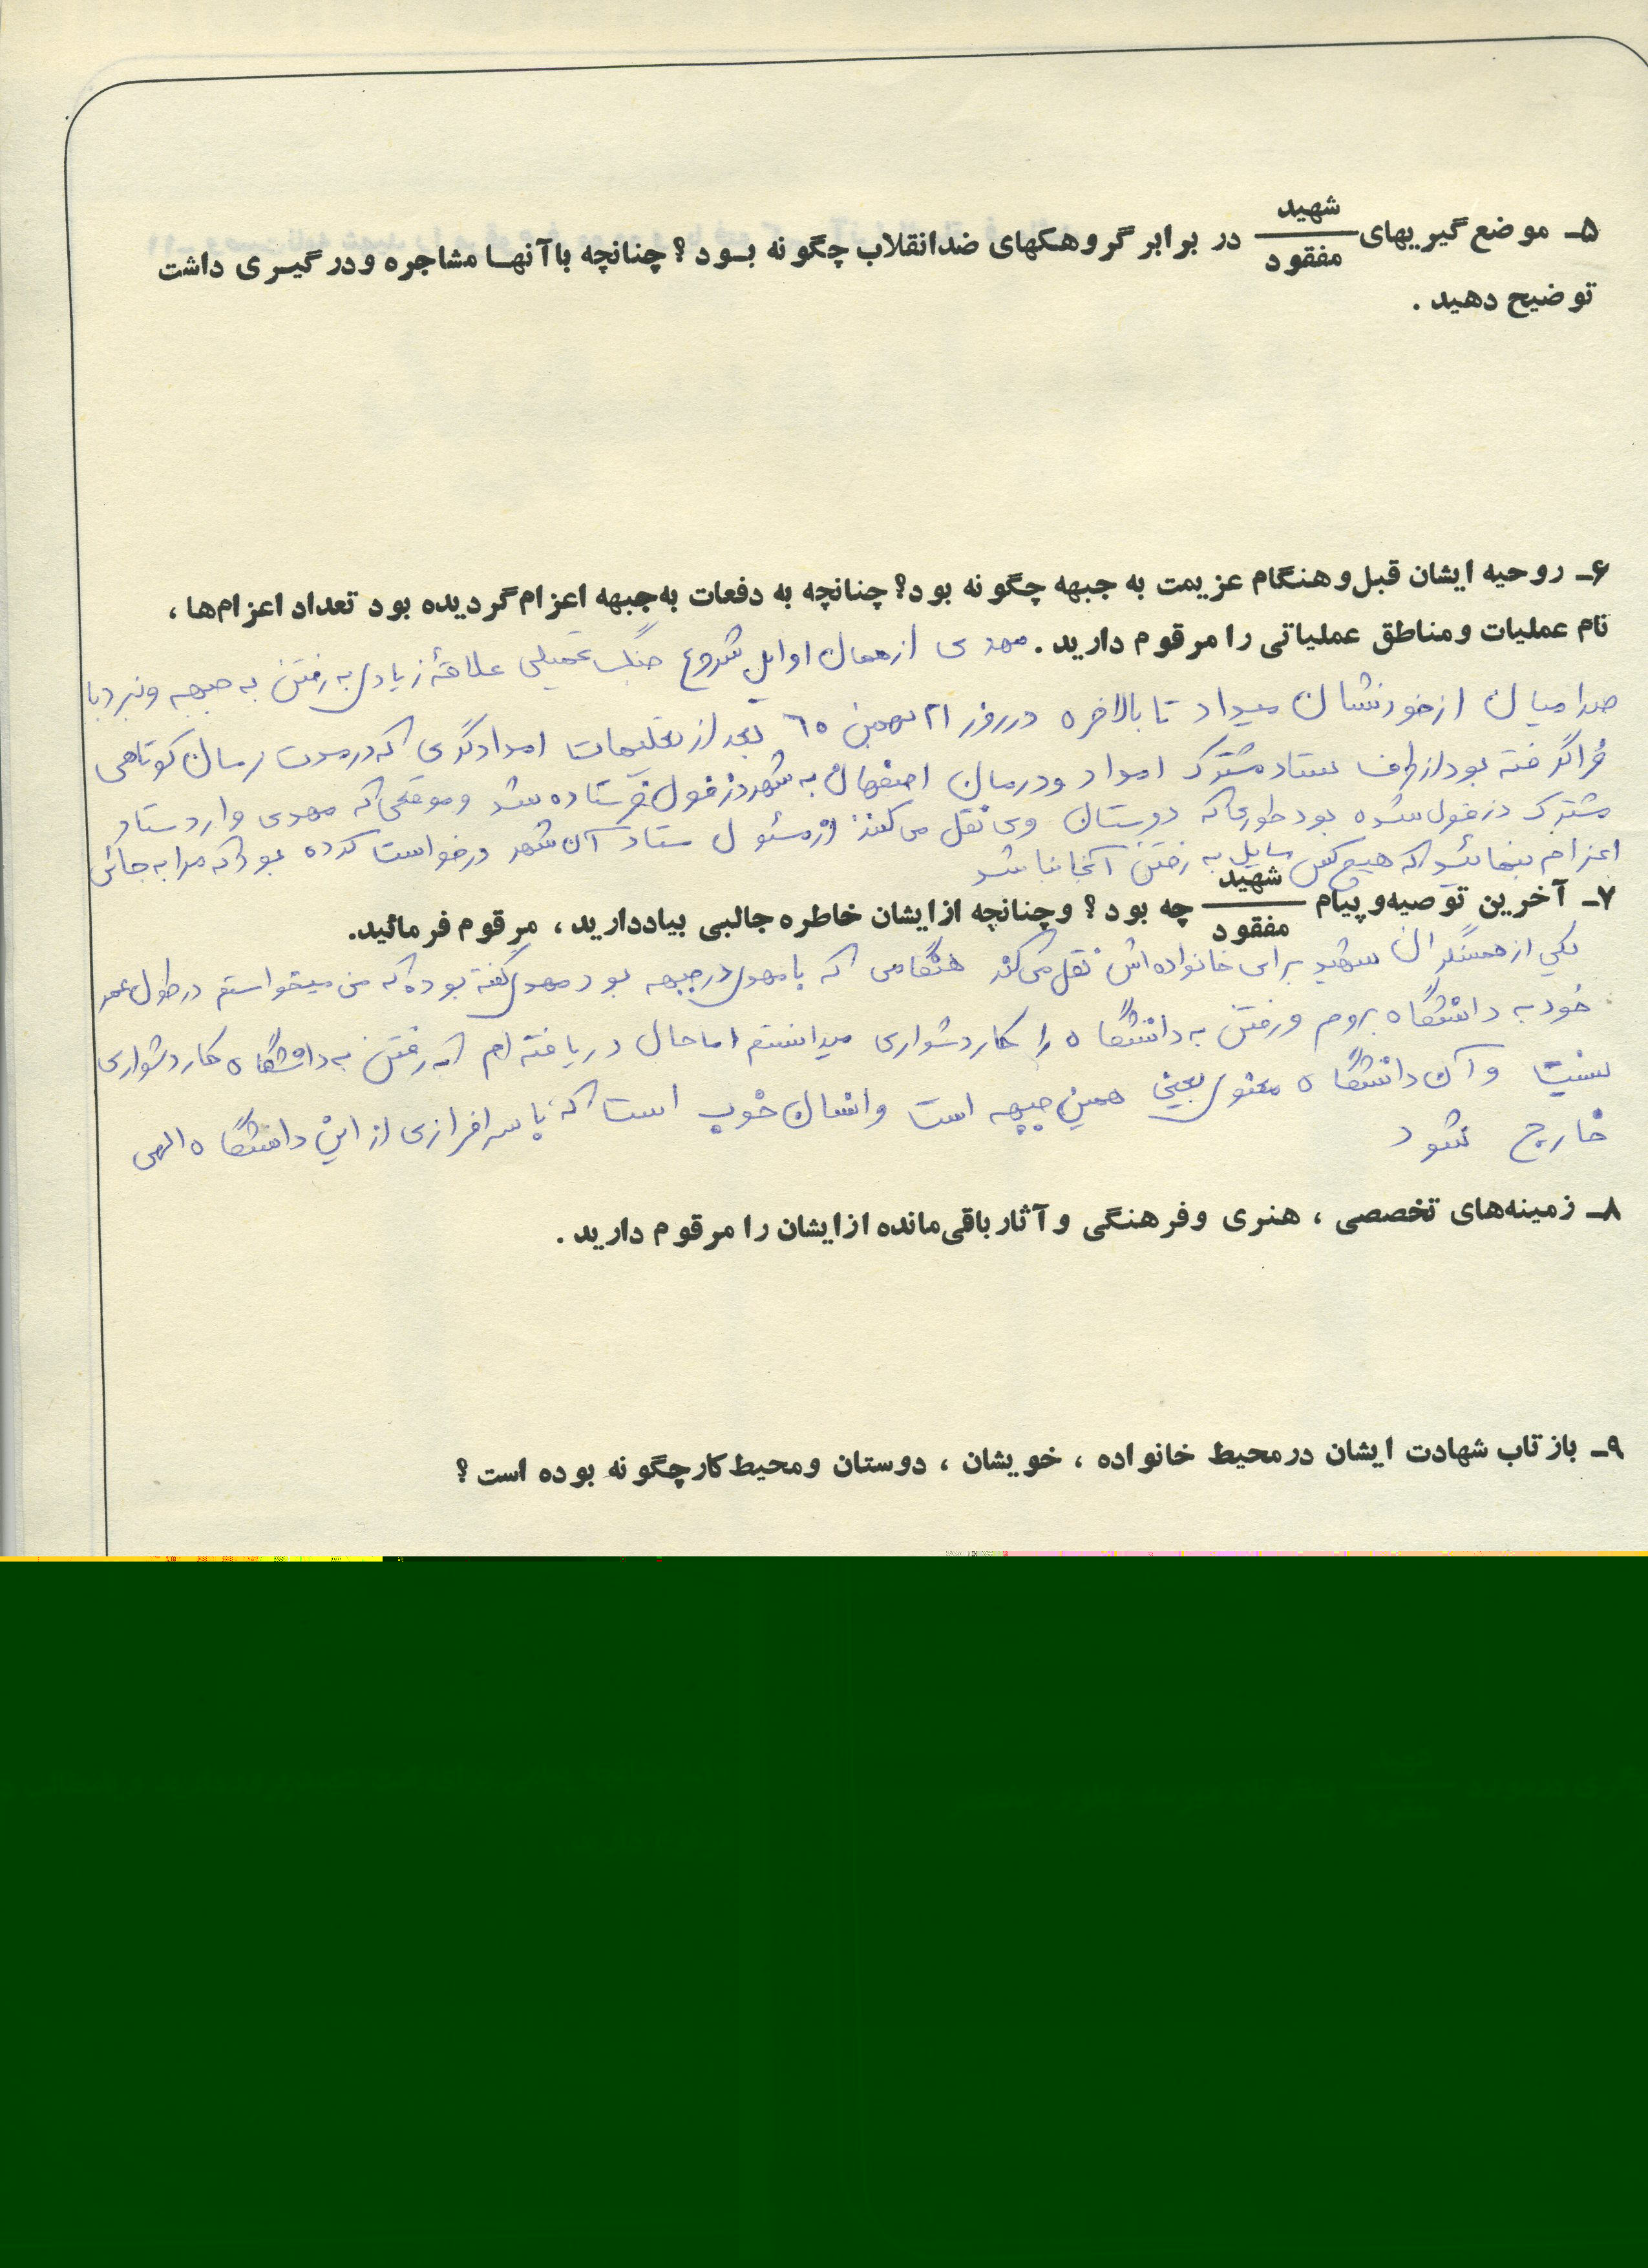 ۵ـ موضع‌گیریهای شهید/مفقود در برابر گروهکهای ضدانقلاب چگونه بــود ؟ چنانچه باآنهــا مشاجره ودرگیـری داشت
توضیح دهید .
۶ـ روحیه ایشان قبل‌وهنگام عزیمت به جبهه چگونه بود؟ چنانچه به دفعات به‌جبهه اعزام‌گردیده بود تعداد اعزام‌ها ،
نام عملیات ومناطق عملیاتی را مرقوم دارید . مهدی از همان اوایل شروع جنگ تحمیلی علاقهٔ زیادی به رفتن به جبهه ونبرد با
صدامیان از خود نشان میداد تا بالاخره در روز ۲۱ بهمن ۶۵ بعد از تعلیمات امدادگری که در مدت زمان کوتاهی
فراگرفته بود از طرف ستاد مشترک امداد ودرمان اصفهان به شهر دزفول فرستاده شد وموقعی که مهدی وارد ستاد
مشترک دزفول شده بود طوریکه دوستان وی نقل می‌کنند از مسئول ستاد آن شهر درخواست کرده بود که مرا به جائی
اعزام بنمائید که هیچ کس مایل به رفتن آنجا نباشد
۷ـ آخرین توصیه‌وپیام شهید/مفقود چه بود ؟ وچنانچه ازایشان خاطره جالبی بیاددارید ، مرقوم فرمائید.
یکی از همسنگران شهید برای خانواده‌اش نقل می‌کند هنگامی که با مهدی در جبهه بود مهدی گفته بوده که من میخواستم در طول عمر
خود به دانشگاه بروم ورفتن به دانشگاه را کار دشواری میدانستم اما حال دریافته‌ام که رفتن به دانشگاه کار دشواری
نیست وآن دانشگاه معنوی یعنی همین جبهه است وانسان خوب است که با سرافرازی از این دانشگاه الهی
خارج شود
۸ـ زمینه‌های تخصصی ، هنری وفرهنگی وآثارباقی‌مانده ازایشان را مرقوم دارید .
۹ـ بازتاب شهادت ایشان درمحیط خانواده ، خویشان ، دوستان ومحیط‌کارچگونه بوده است ؟